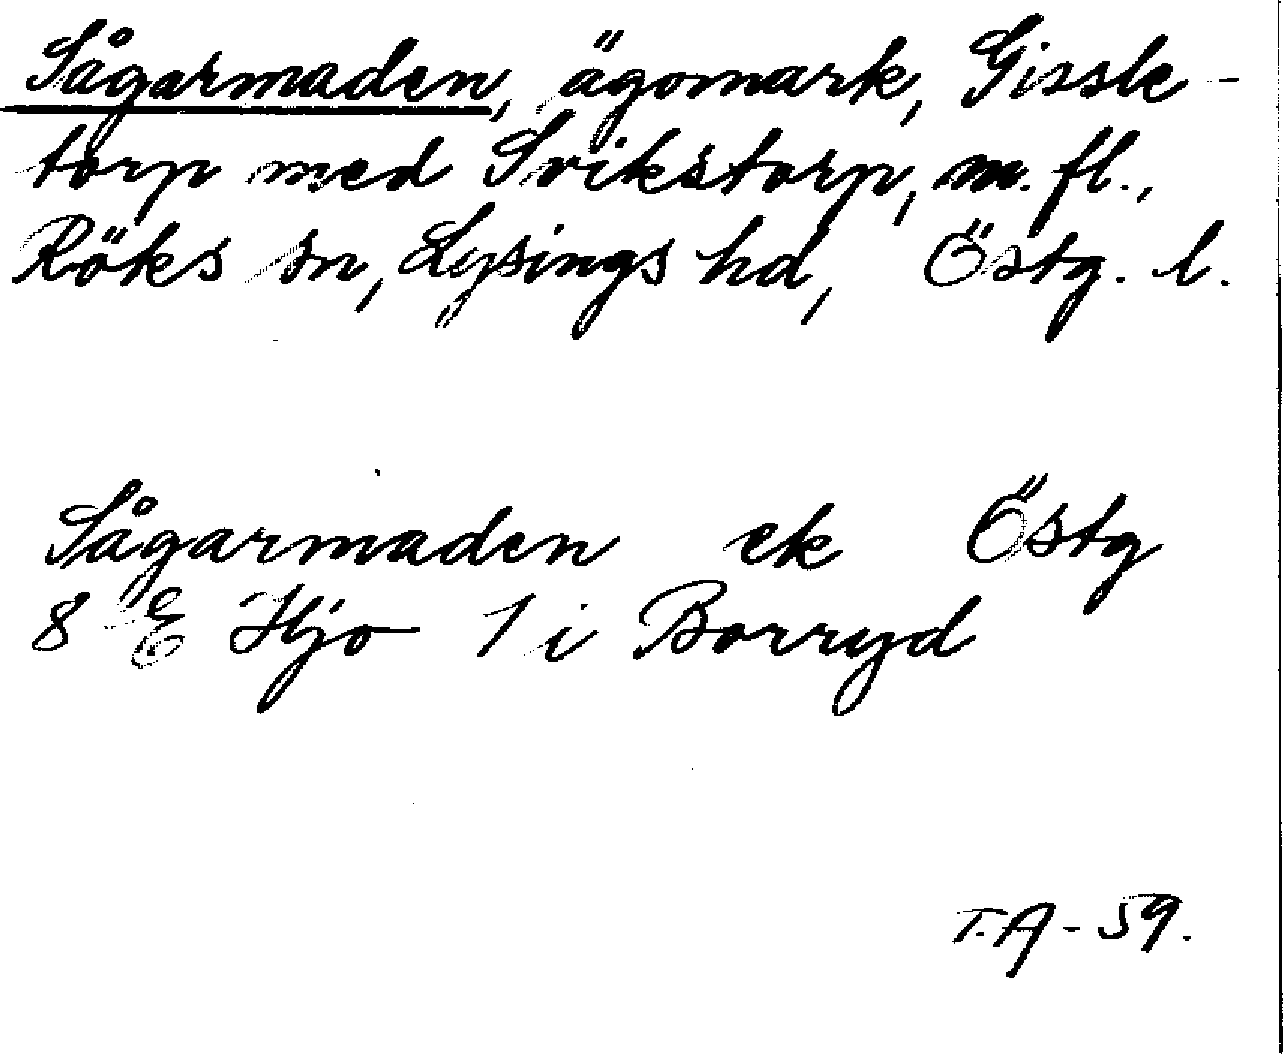 Sågarmaden, ägomark, Gissle-
torp med Svikstorp, m. fl.,
Röks sn, Lysings hd, Östg. l.
Sågarmaden ek Östg
8 E Hjo 1 i Borryd
T.A-59.